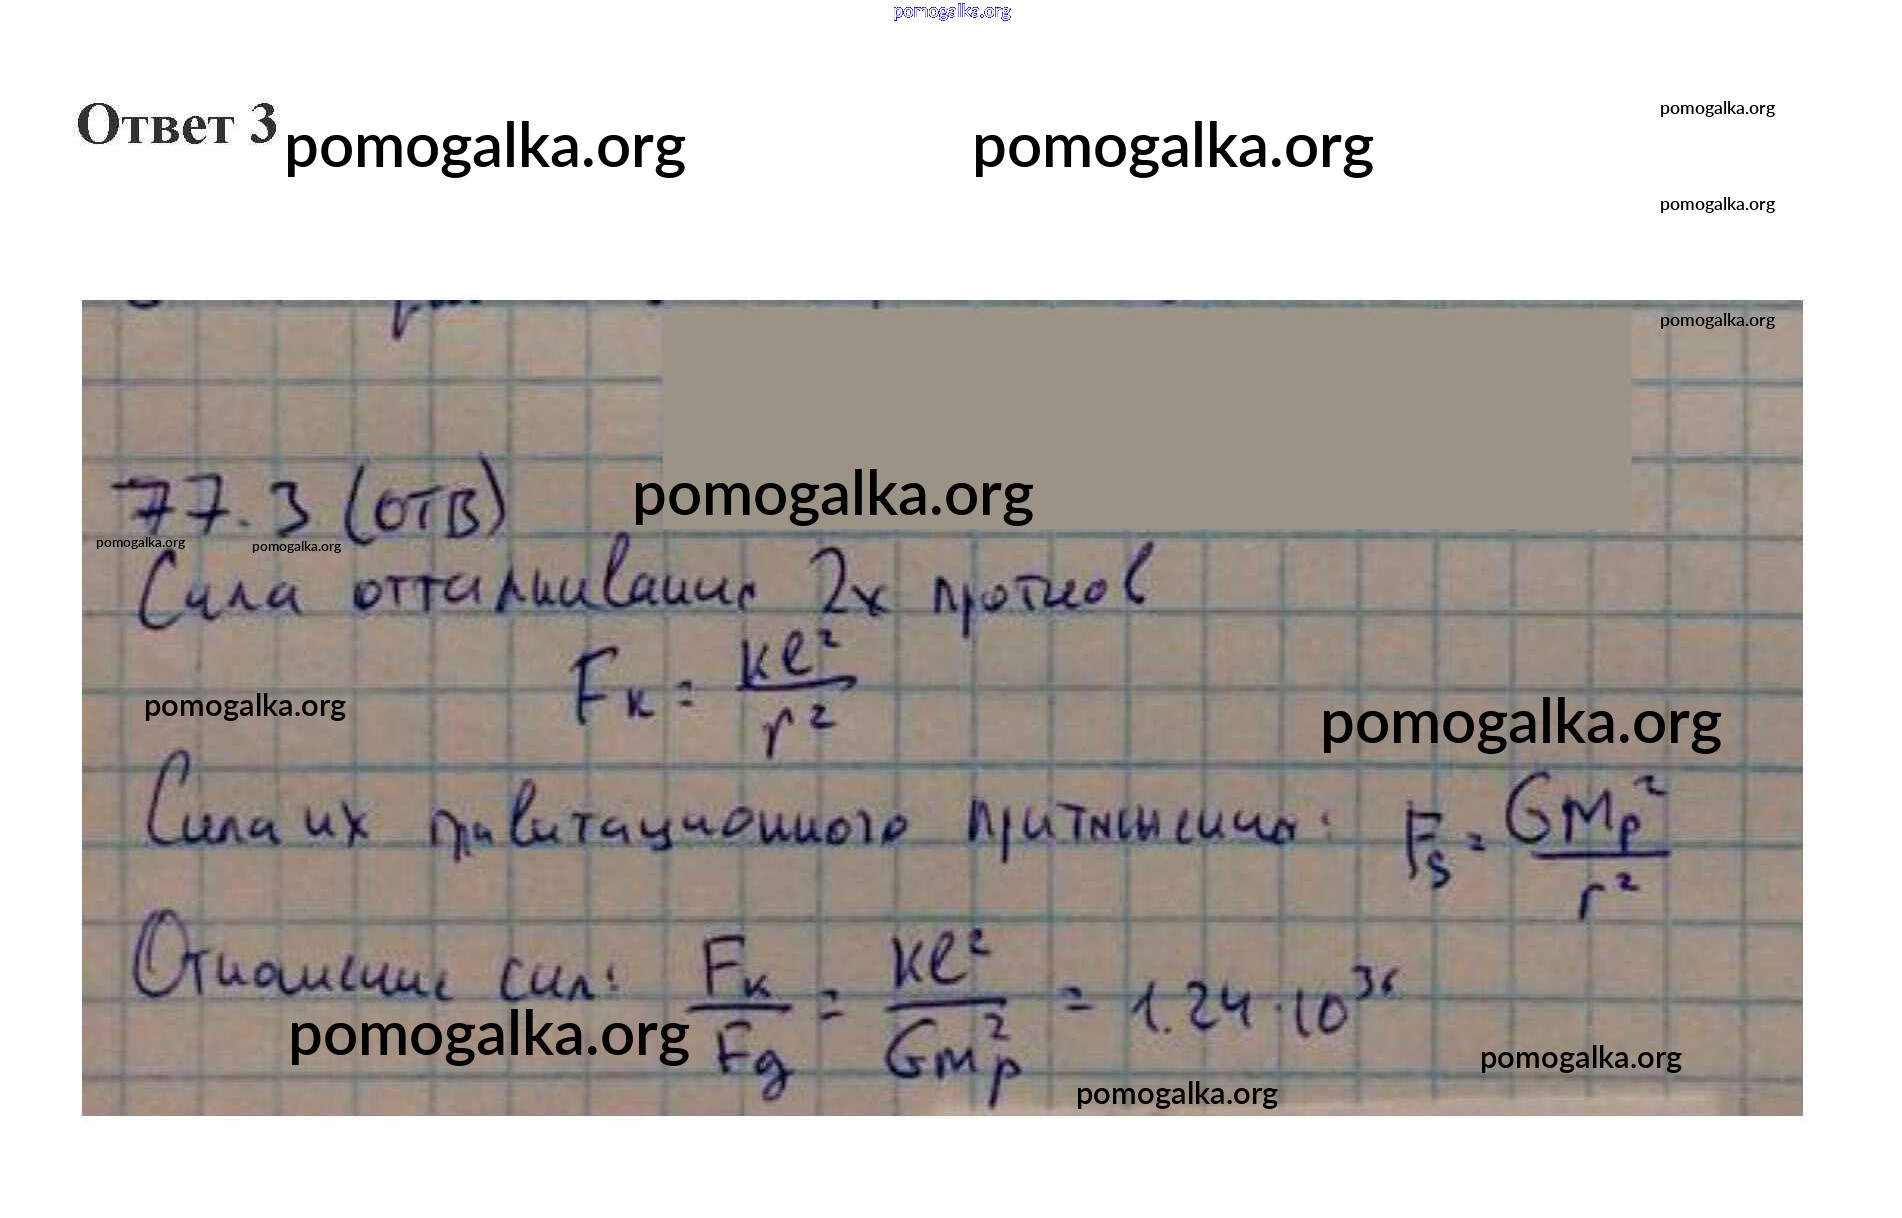 pomogalka.org
Ответ 3
pomogalka.org pomogalka.org
pomogalka.org
pomogalka.org
pomogalka.org
77.3 (отв)
pomogalka.org
pomogalka.org pomogalka.org
Сила отталкивания 2х протнов
Fк = ke²/r²
pomogalka.org
pomogalka.org
Сила их гравитационного притяжения: Fg = Gmp²/r²
Отношение сил: Fк/Fg = ke²/Gmp² = 1.24 · 10³⁶
pomogalka.org
pomogalka.org
pomogalka.org